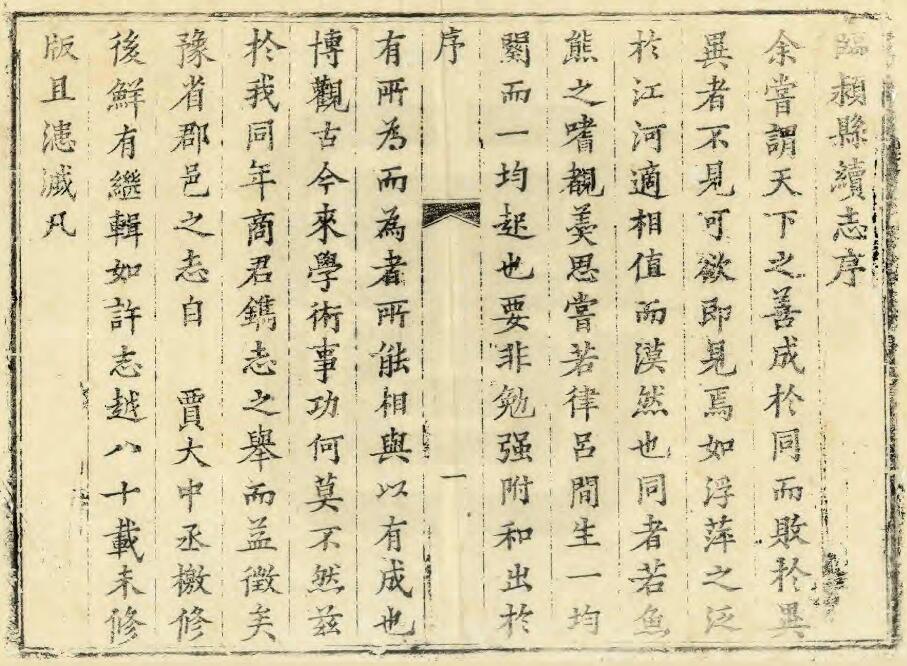 臨潁縣續志序
余嘗謂天下之善成於同而敗於異
異者不見可欲即見焉如浮萍之泛
於江河適相值而漠然也同者若魚
熊之嗜覩羹思嘗若律呂間生一均
闋而一均起也要非勉强附和出於
序 一
有所為而為者所能相與以有成也
博觀古今來學術事功何莫不然茲
於我同年商君鐫志之舉而益徵矣
豫省郡邑之志自 賈大中丞檄修
後鮮有繼輯如許志越八十載未修
版且漶滅凡